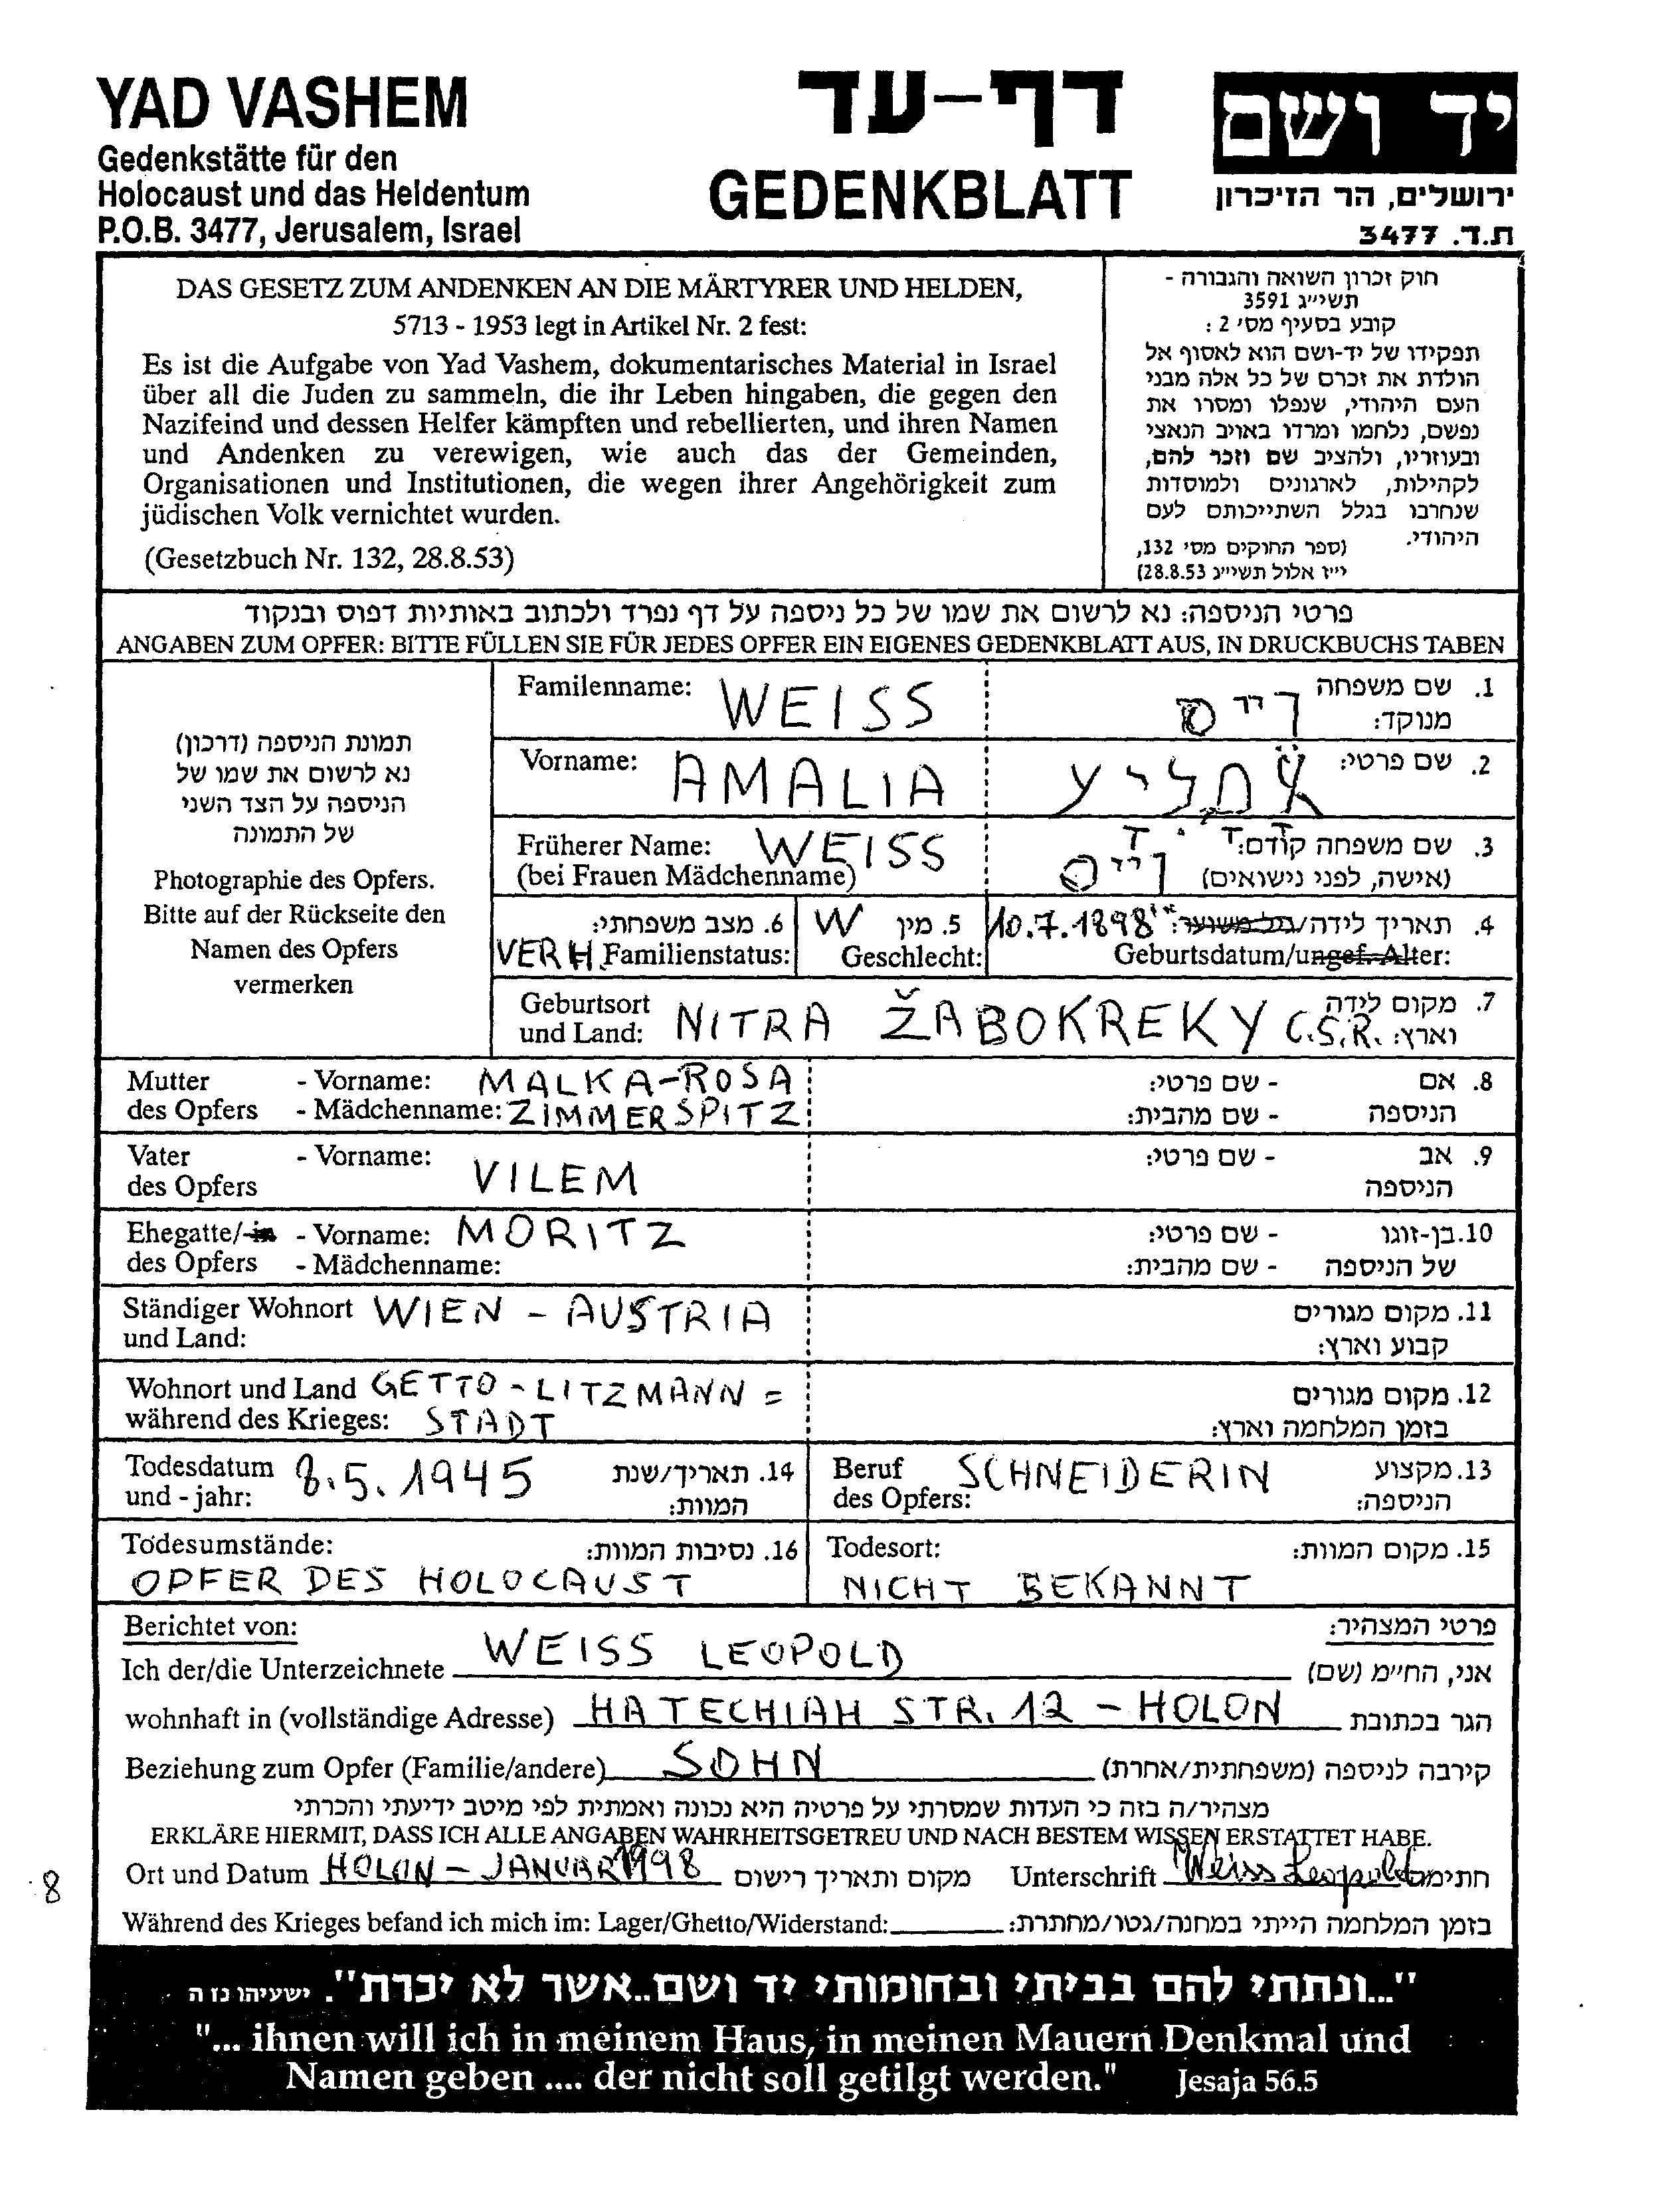 YAD VASHEM
Gedenkstätte für den
Holocaust und das Heldentum
P.O.B. 3477, Jerusalem, Israel
דף-עד
GEDENKBLATT
יד ושם
ירושלים, הר הזיכרון
ת.ד. 3477
DAS GESETZ ZUM ANDENKEN AN DIE MÄRTYRER UND HELDEN,
5713 - 1953 legt in Artikel Nr. 2 fest:
Es ist die Aufgabe von Yad Vashem, dokumentarisches Material in Israel
über all die Juden zu sammeln, die ihr Leben hingaben, die gegen den
Nazifeind und dessen Helfer kämpften und rebellierten, und ihren Namen
und Andenken zu verewigen, wie auch das der Gemeinden,
Organisationen und Institutionen, die wegen ihrer Angehörigkeit zum
jüdischen Volk vernichtet wurden.
(Gesetzbuch Nr. 132, 28.8.53)
חוק זכרון השואה והגבורה -
תשי״ג 3591
קובע בסעיף מס׳ 2 :
תפקידו של יד-ושם הוא לאסוף אל
הולדת את זכרם של כל אלה מבני
העם היהודי, שנפלו ומסרו את
נפשם, נלחמו ומרדו באויב הנאצי
ובעוזריו, ולהציב שם וזכר להם,
לקהילות, לארגונים ולמוסדות
שנחרבו בגלל השתייכותם לעם
היהודי.
(ספר החוקים מס׳ 132,
י״ז אלול תשי״ג 28.8.53)
פרטי הניספה: נא לרשום את שמו של כל ניספה על דף נפרד ולכתוב באותיות דפוס ובנקוד
ANGABEN ZUM OPFER: BITTE FÜLLEN SIE FÜR JEDES OPFER EIN EIGENES GEDENKBLATT AUS, IN DRUCKBUCHS TABEN
תמונת הניספה (דרכון)
נא לרשום את שמו של
הניספה על הצד השני
של התמונה
Photographie des Opfers.
Bitte auf der Rückseite den
Namen des Opfers
vermerken
Familenname: WEISS
1. שם משפחה
מנוקד: וייס
Vorname: AMALIA
2. שם פרטי:
Früherer Name: WEISS
(bei Frauen Mädchenname)
3. שם משפחה קודם:
(אישה, לפני נישואים) וייס
6. מצב משפחתי:
VERH. Familienstatus:
5. מין W
Geschlecht:
4. תאריך לידה/גיל משוער: 10.7.1898
Geburtsdatum/ungef. Alter:
Geburtsort
und Land: NITRA ŽABOKREKY C.S.R.
7. מקום לידה
וארץ:
Mutter - Vorname: MALKA-ROSA
des Opfers - Mädchenname: ZIMMERSPITZ
8. אם - שם פרטי:
הניספה - שם מהבית:
Vater - Vorname: VILEM
des Opfers
9. אב - שם פרטי:
הניספה
Ehegatte/-in - Vorname: MORITZ
des Opfers - Mädchenname:
10. בן-זוגו - שם פרטי:
של הניספה - שם מהבית:
Ständiger Wohnort WIEN - AUSTRIA
und Land:
11. מקום מגורים
קבוע וארץ:
Wohnort und Land GETTO - LITZMANN =
während des Krieges: STADT
12. מקום מגורים
בזמן המלחמה וארץ:
Todesdatum 8.5.1945
und -jahr:
14. תאריך/שנת
המוות:
Beruf SCHNEIDERIN
des Opfers:
13. מקצוע
הניספה:
Todesumstände: 16. נסיבות המוות:
OPFER DES HOLOCAUST
Todesort: 15. מקום המוות:
NICHT BEKANNT
Berichtet von: פרטי המצהיר:
Ich der/die Unterzeichnete WEISS LEOPOLD אני, החי״מ (שם)
wohnhaft in (vollständige Adresse) HATECHIAH STR. 12 - HOLON הגר בכתובת
Beziehung zum Opfer (Familie/andere) SOHN קירבה לניספה (משפחתית/אחרת)
מצהיר/ה בזה כי העדות שמסרתי על פרטיה היא נכונה ואמתית לפי מיטב ידיעתי והכרתי
ERKLÄRE HIERMIT, DASS ICH ALLE ANGABEN WAHRHEITSGETREU UND NACH BESTEM WISSEN ERSTATTET HABE.
Ort und Datum HOLON - JANUAR 1998 מקום ותאריך רישום Unterschrift Weiss Leopold חתימה
8
Während des Krieges befand ich mich im: Lager/Ghetto/Widerstand: בזמן המלחמה הייתי במחנה/גטו/מחתרת:
"...ונתתי להם בביתי ובחומותי יד ושם..אשר לא יכרת". ישעיהו נז ה
"... ihnen will ich in meinem Haus, in meinen Mauern Denkmal und
Namen geben .... der nicht soll getilgt werden." Jesaja 56.5